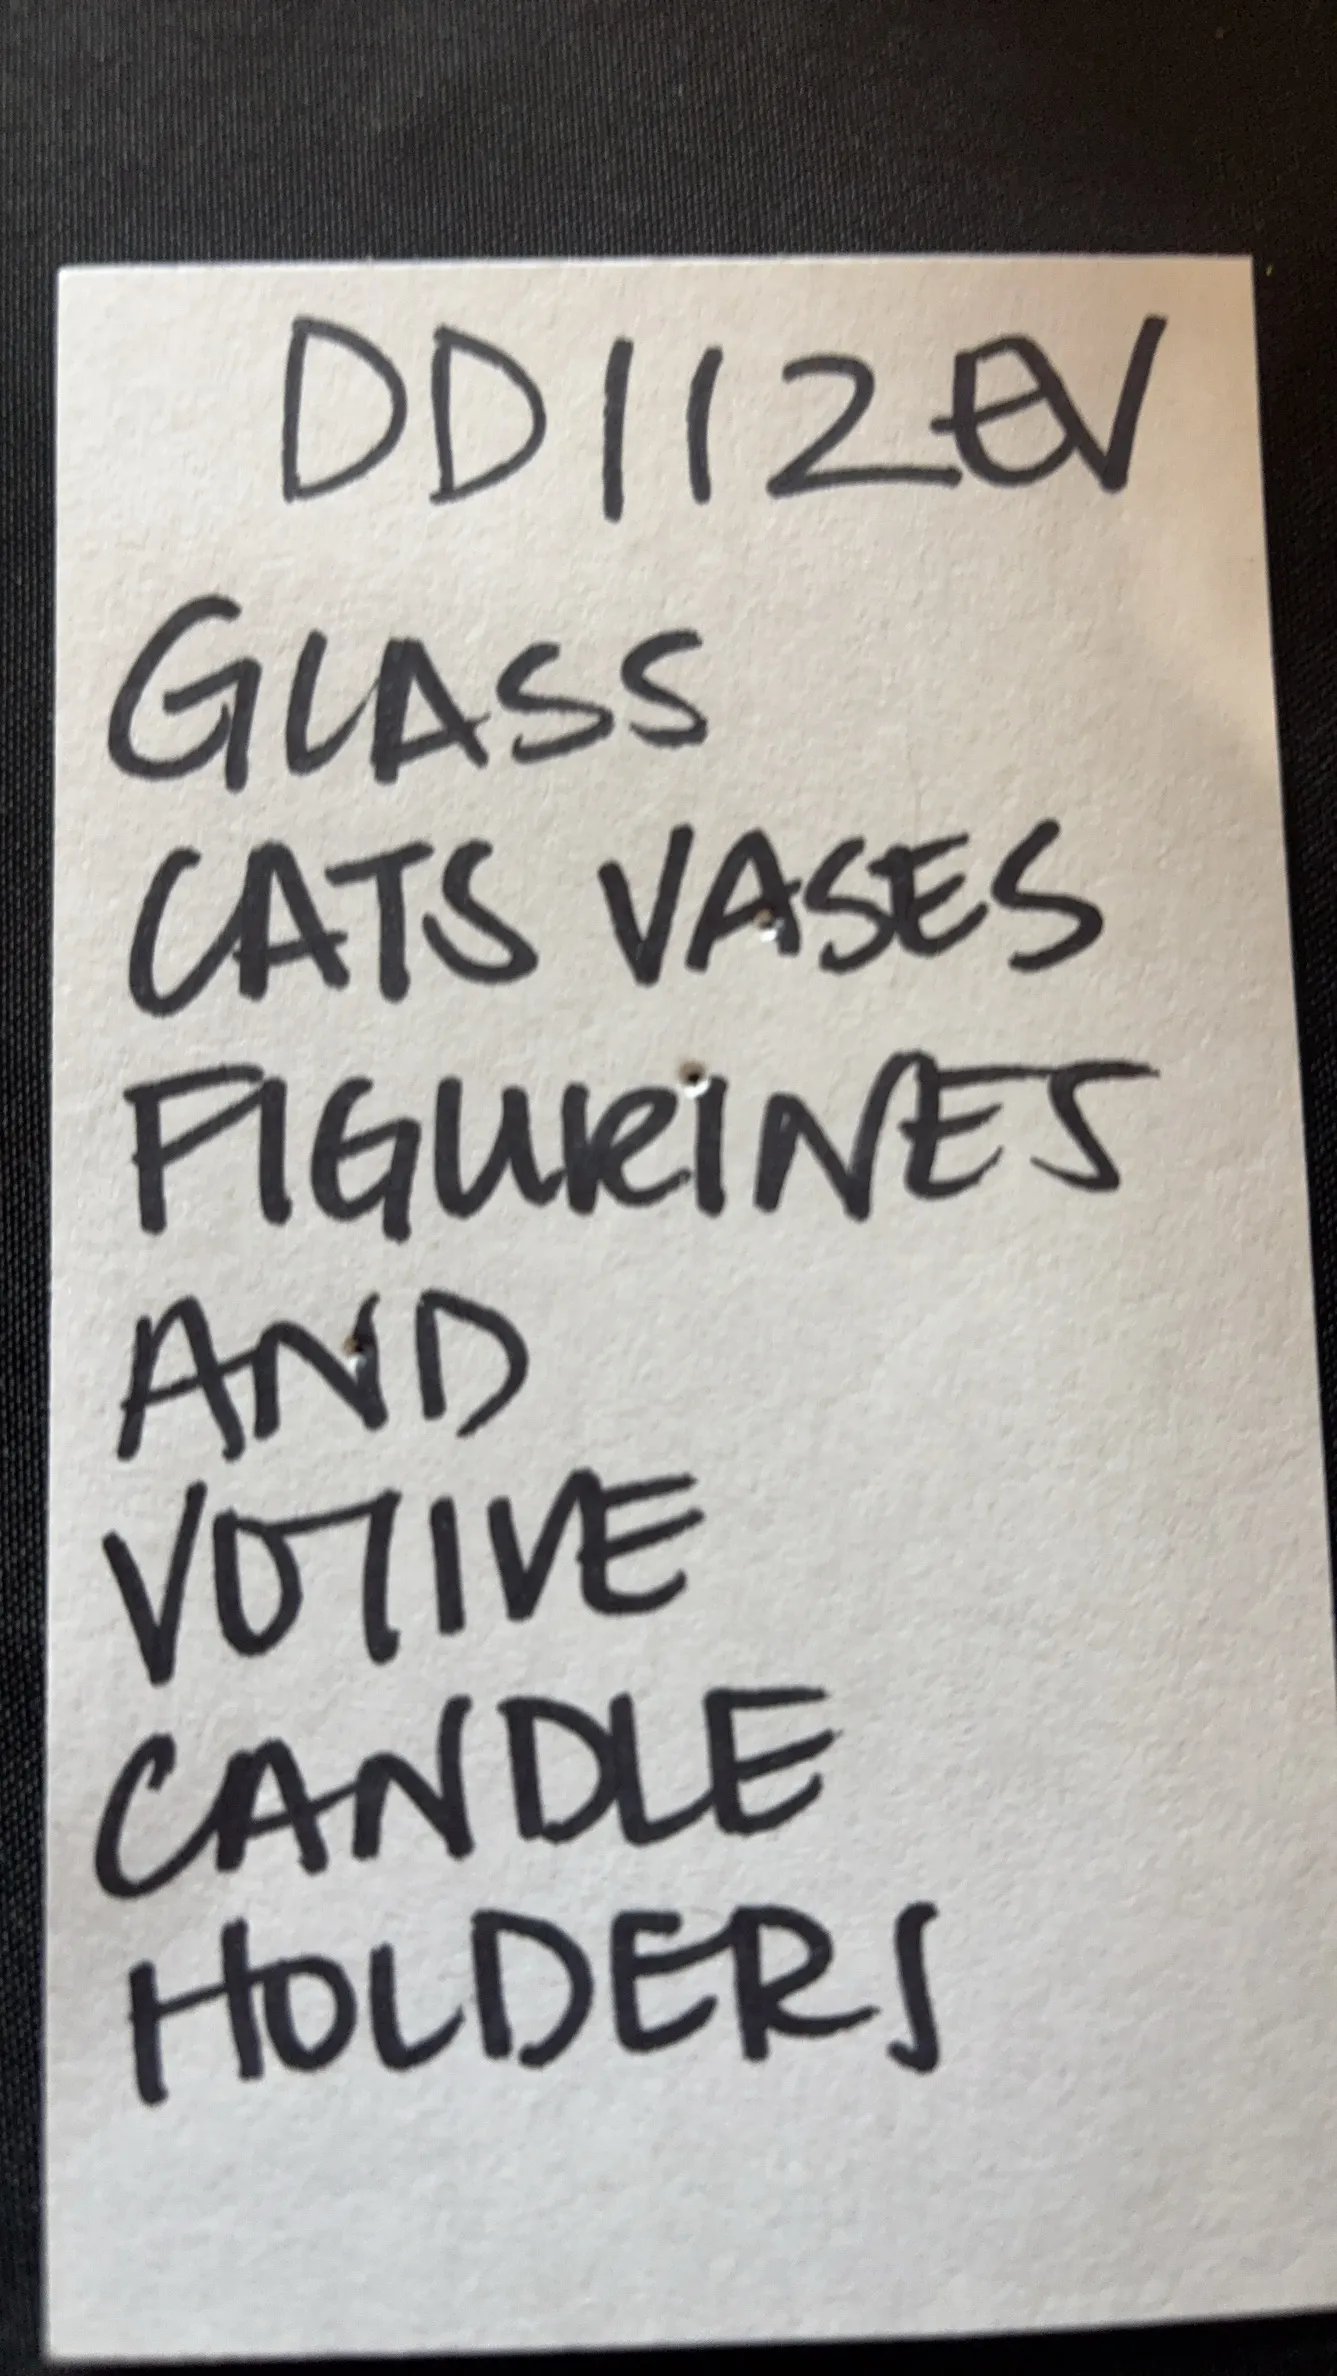 DD112EV
GLASS
CATS VASES
FIGURINES
AND
VOTIVE
CANDLE
HOLDERS